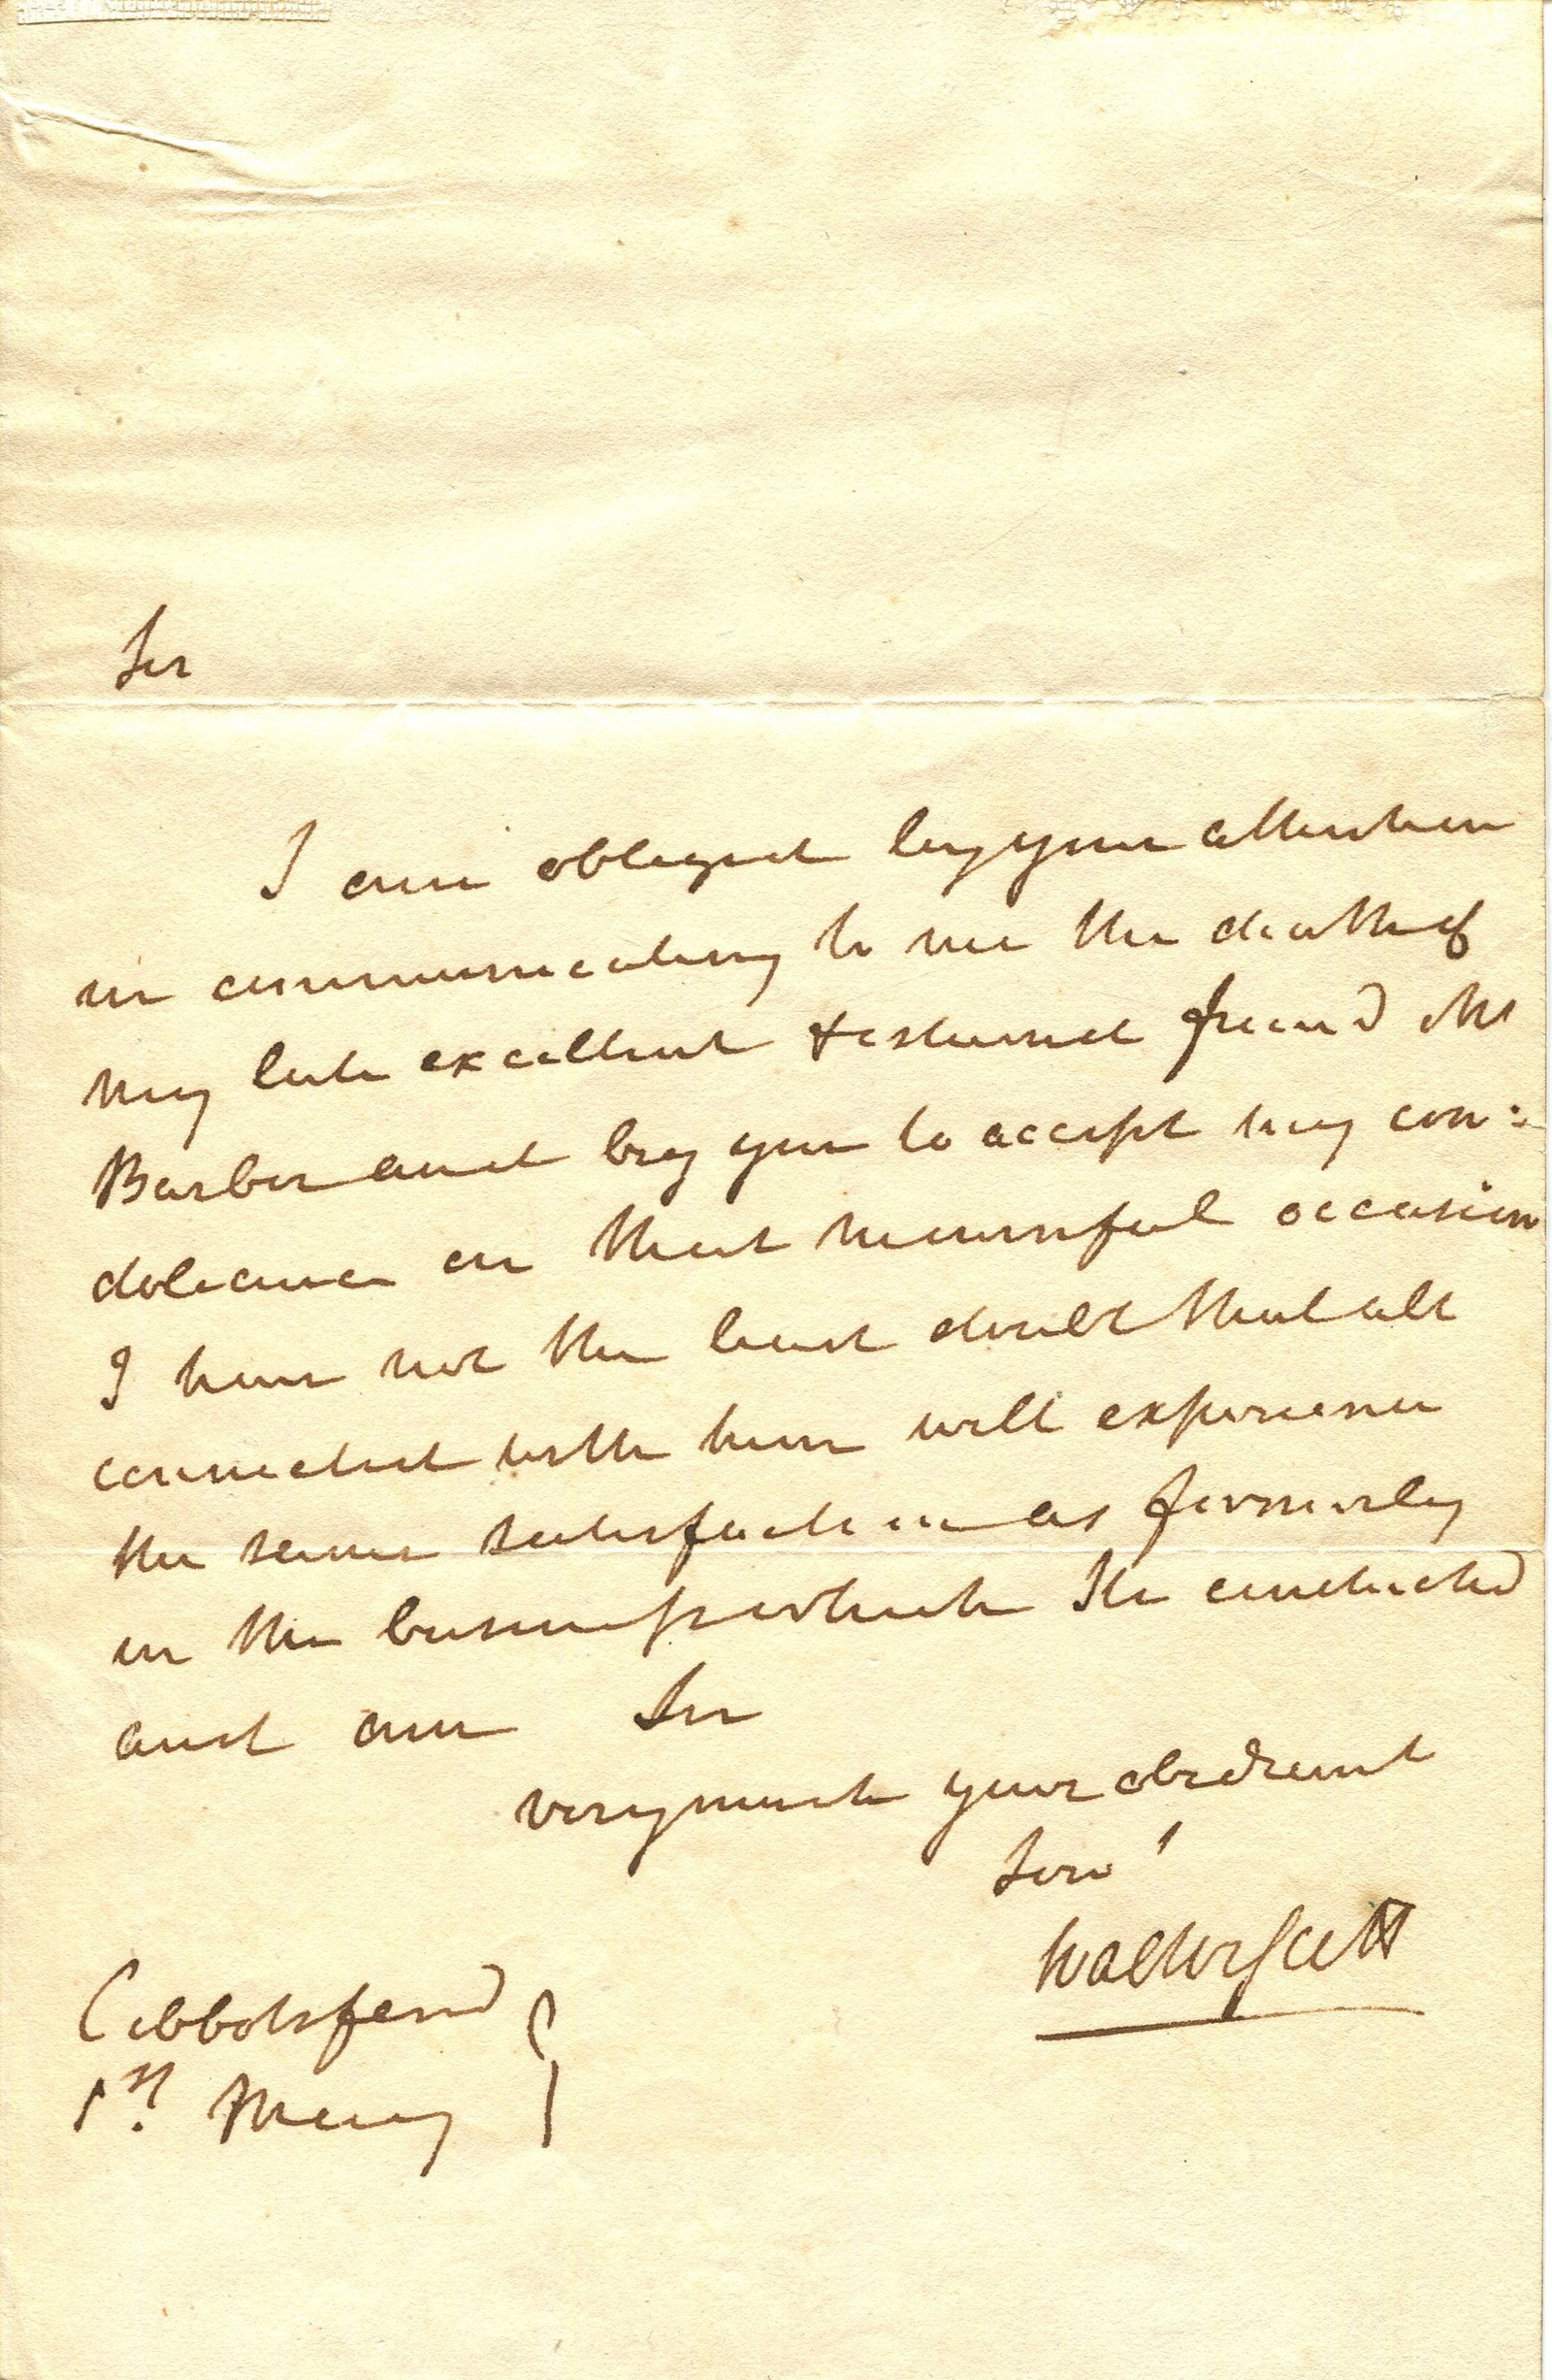 Sir
I am obliged by your attention
in communicating to me the death of
my late excellent & esteemed friend Mr
Barber and beg you to accept my con=
doleance on that mournful occasion
I have not the least doubt that all
connected with him will experience
the same satisfaction as formerly
in the business which he conducted
and am Sir
very much your obedient
Serv^t
Walter Scott
Abbotsford
1st. May